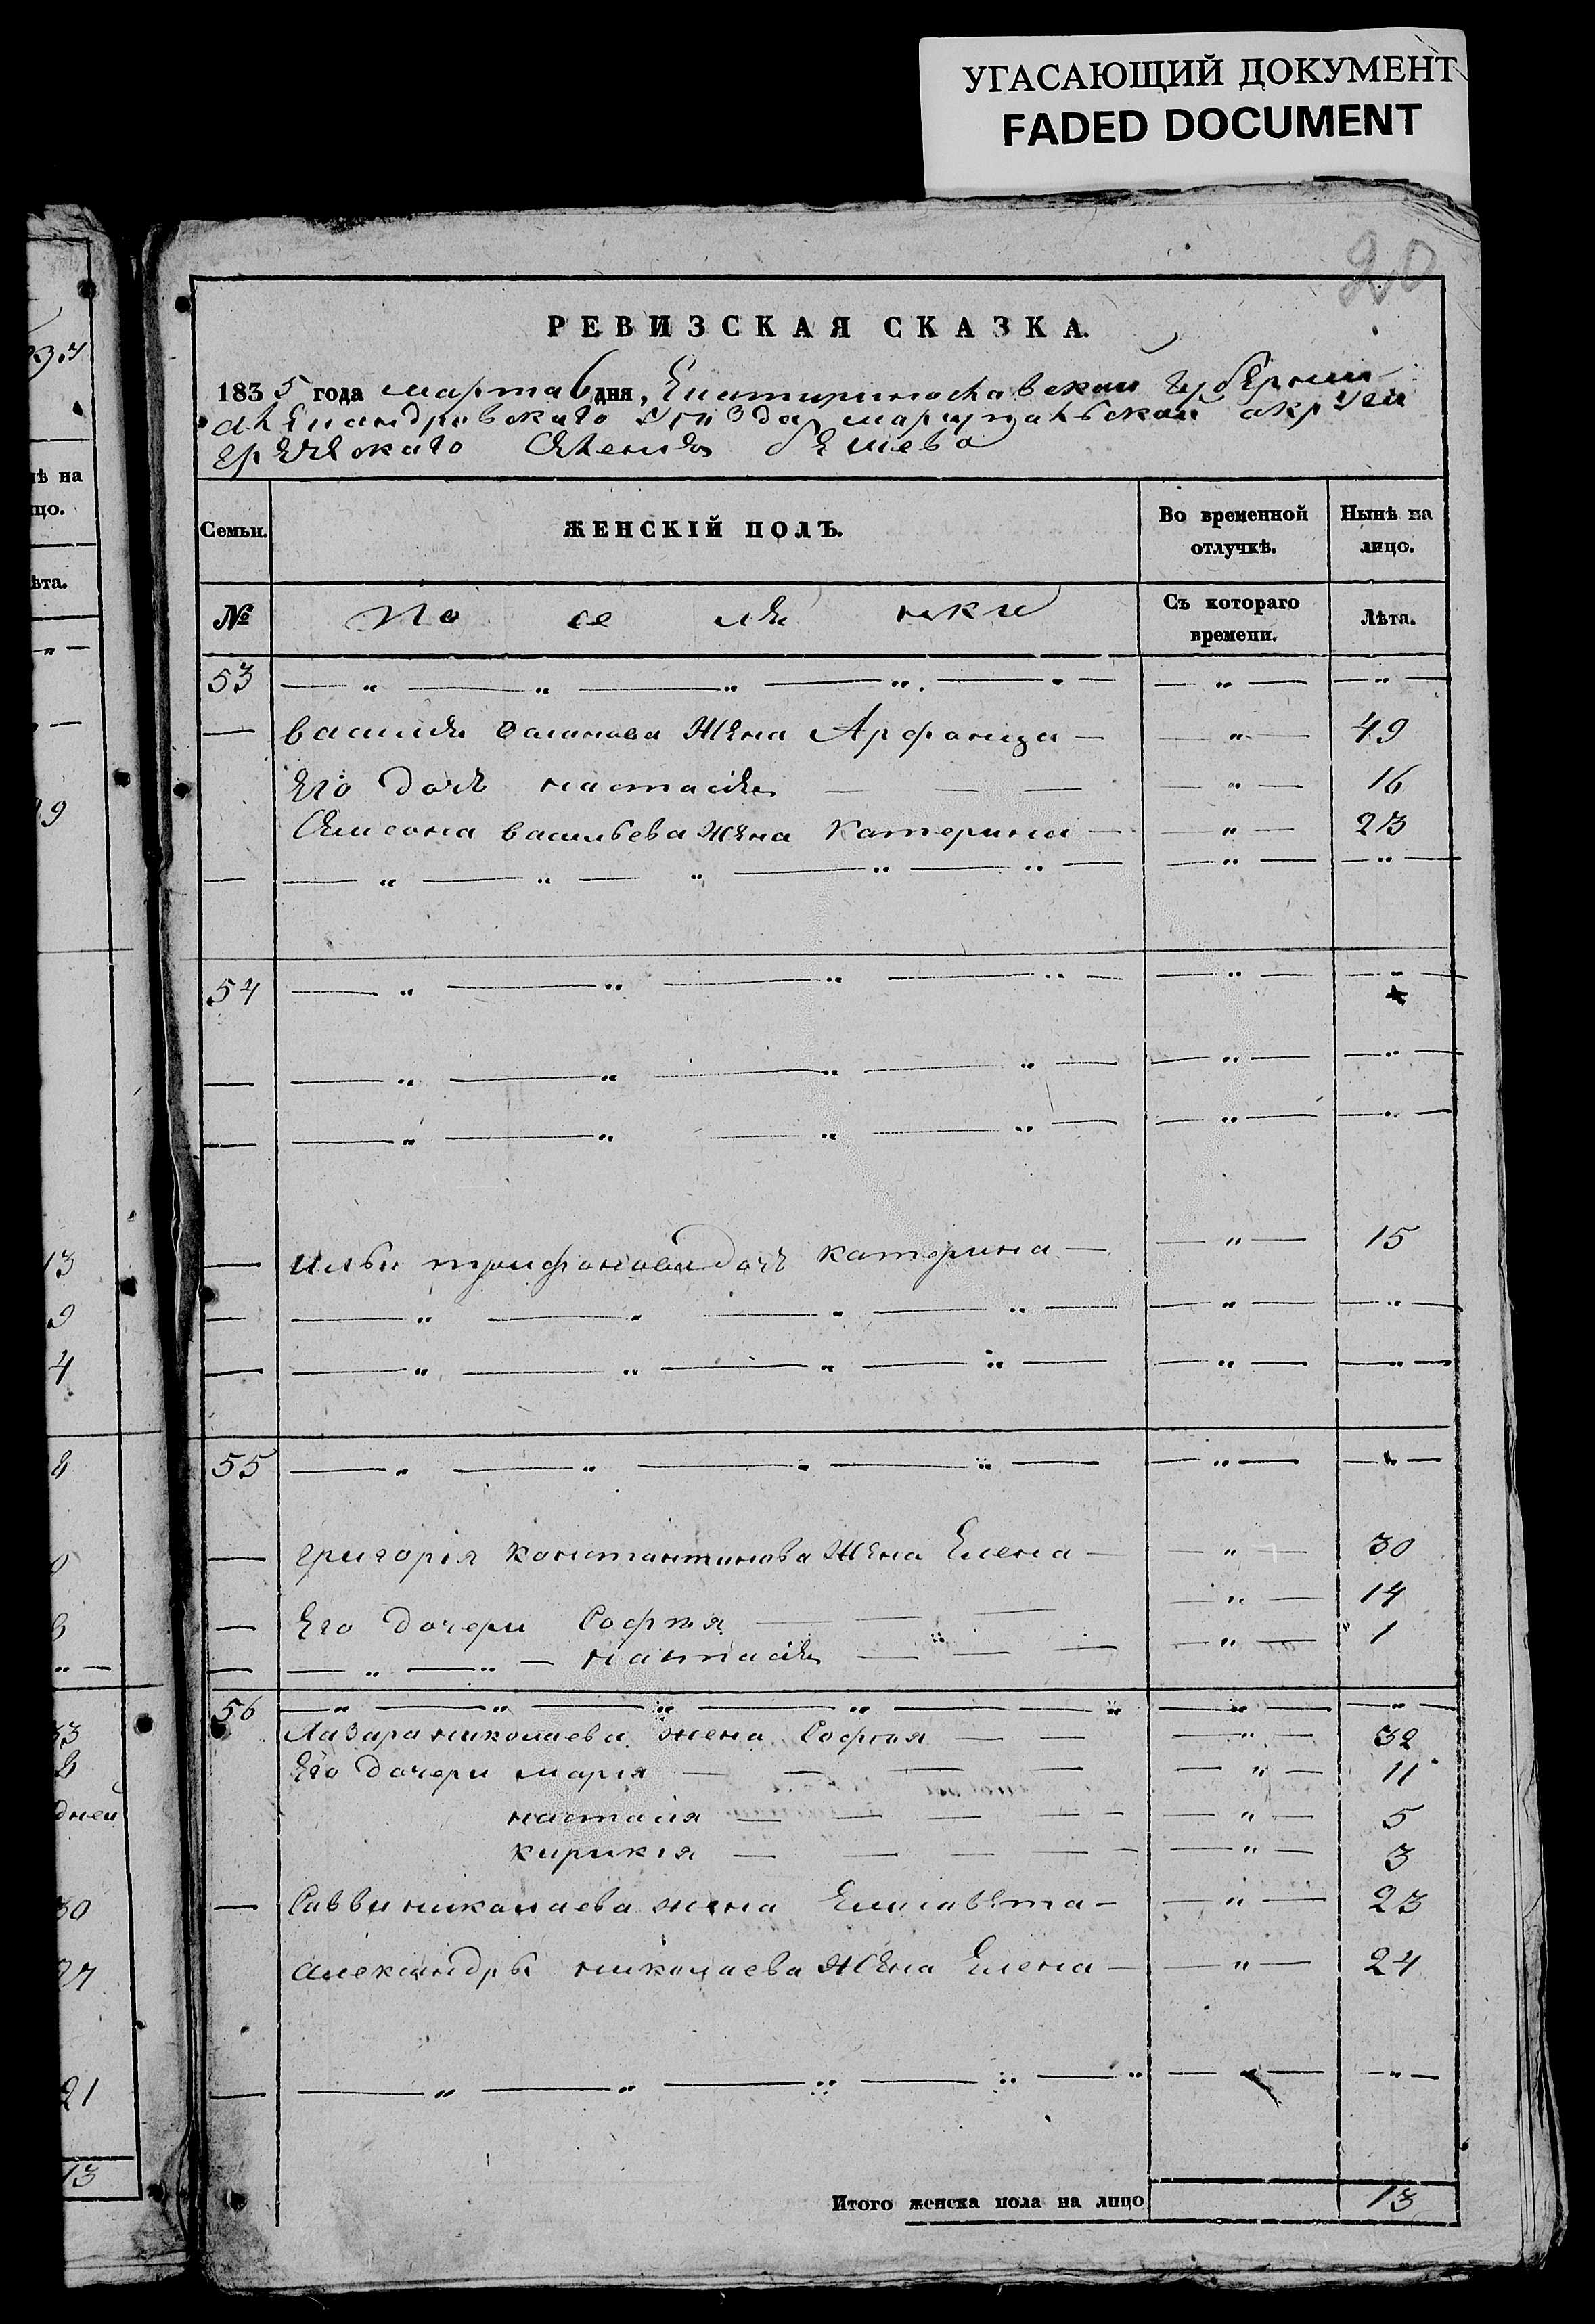 УГАСАЮЩИЙ ДОКУМЕНТ
FADED DOCUMENT
20
РЕВИЗСКАЯ СКАЗКА.
1835 года марта 6 дня, Екатиринославской губернии
алеѯандровскаго уезда мариупольской округи
греческаго селения бешева
Семьи.
ЖЕНСКІЙ ПОЛЪ.
Во временной отлучкѣ.
Нынѣ на лицо.
№
По се ля нки
Съ котораго времени.
Лѣта.
53 — „ — „ — „ — „ — „ — — „ — — „ —
— василия жѣна — — „ — 49
Его дочь настасия — — — — „ — 16
Симеона васильева жѣна Катерина — — „ — 23
— — „ — „ — „ — „ — „ — — „ — — „ —
54 — „ — „ — „ — „ — — „ — — „ —
— — „ — „ — „ — „ — — „ — — „ —
— — „ — „ — „ — „ — — „ — — „ —
— Ильи трифонова дочь катерина — — „ — 15
— — „ — „ — „ — „ — — „ — — „ —
— — „ — „ — „ — „ — — „ — — „ —
55 — „ — „ — „ — „ — — „ — — „ —
— григорія константинова жѣна Елена — — „ — 30
— Его дочери София — — — — „ — 14
— — „ — „ — настасия — — — — „ — „ 1
56 — „ — „ — „ — „ — „ — „ — — „ —
Лазара николаева жена София — — — „ — 32
Его дочери марія — — — — — „ — 11
настасія — — — — — „ — 5
кирикія — — — — — „ — 3
— Саввы николаева жена Елисавѣта — — „ — 23
александры николаева жѣна Елена — — „ — 24
— — „ — „ — „ — „ — „ — „ — — „ —
Итого женска пола на лицо 13
нѣ на
цо.
ѣта.
13
9
4
дней
30
27
21
13